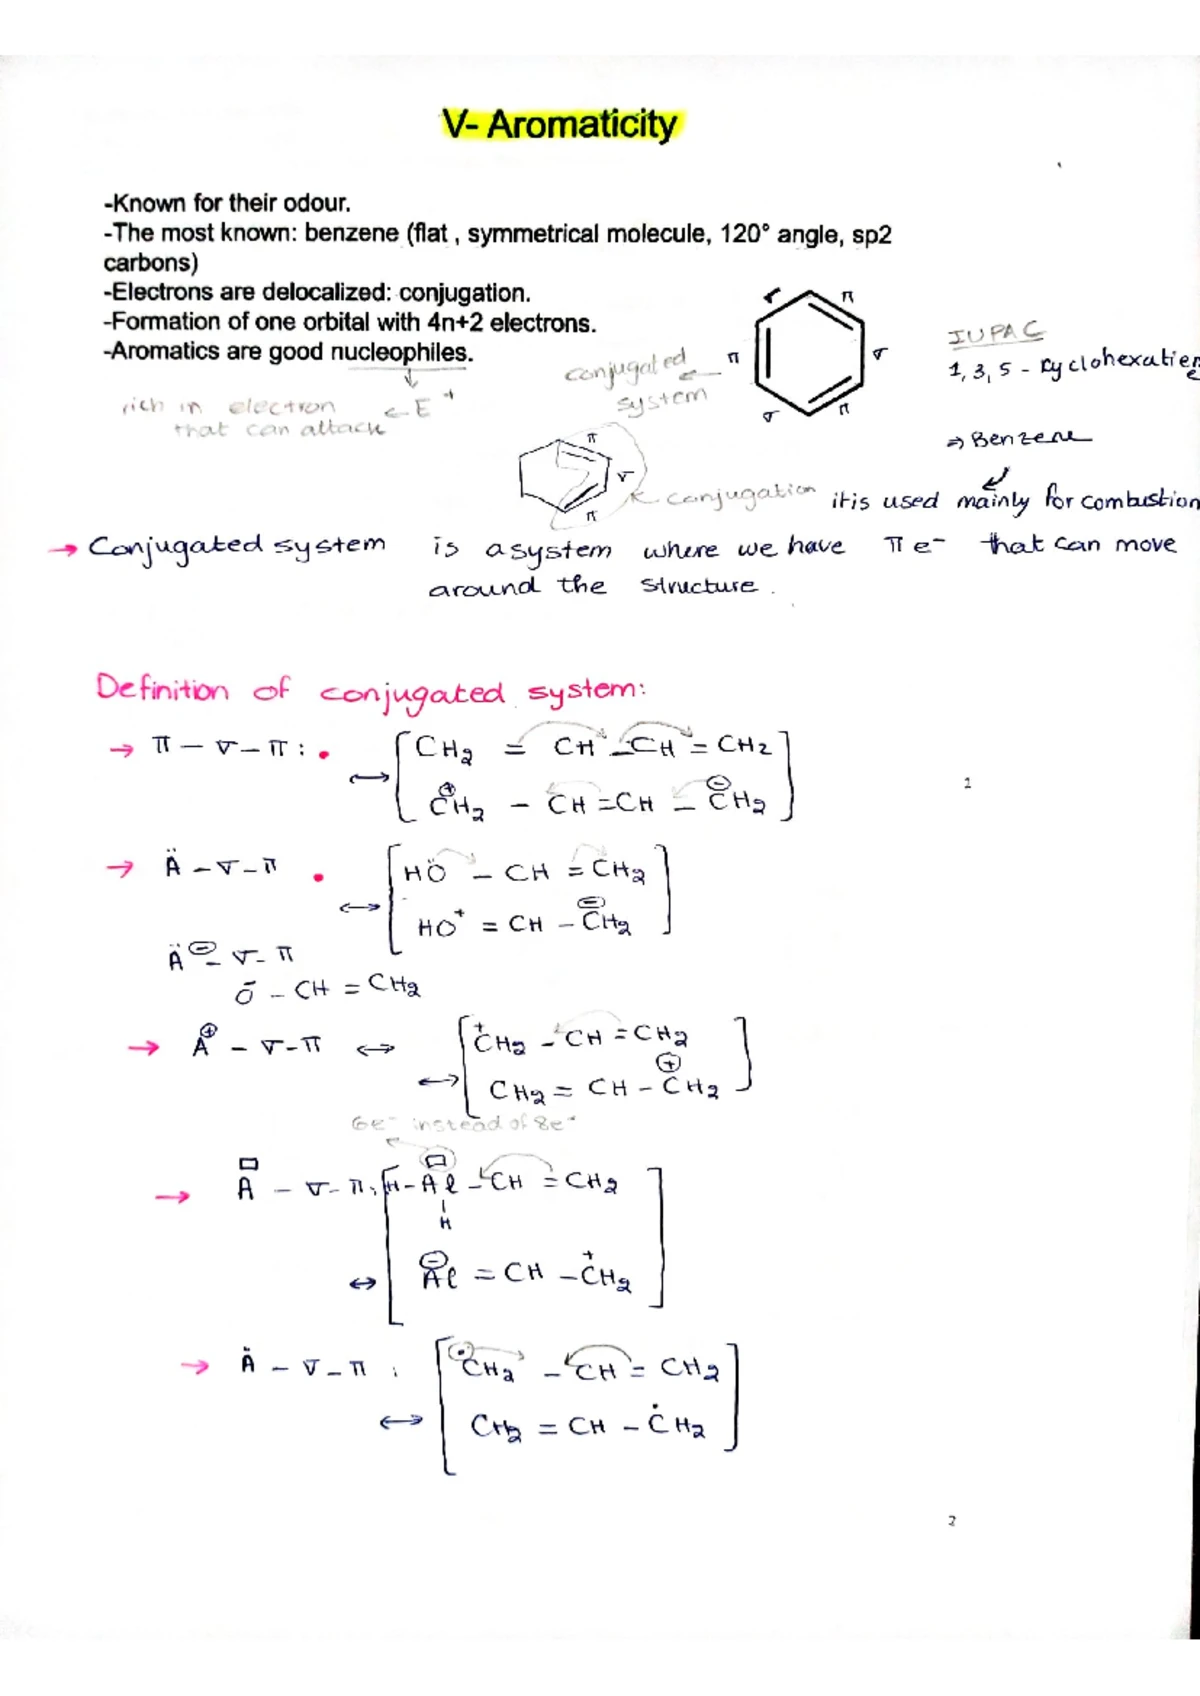 V- Aromaticity
-Known for their odour.
-The most known: benzene (flat , symmetrical molecule, 120° angle, sp2
carbons)
-Electrons are delocalized: conjugation.
-Formation of one orbital with 4n+2 electrons.
-Aromatics are good nucleophiles.
rich in electron ← E⁺
that can attack
conjugated
system
π
π
σ
π
σ
IUPAC
1, 3, 5 - cyclohexatriene
⇒ Benzene
π
σ
π
conjugation
it is used mainly for combustion
→ Conjugated system is a system where we have π e⁻ that can move
around the structure.
Definition of conjugated system:
→ π — σ — π :
CH₂ = CH — CH = CH₂
↔ ⊕CH₂ — CH = CH — ⊖CH₂
1
→ Ä — σ — π
HÖ — CH = CH₂
↔ HO⁺ = CH — ⊖CH₂
Ä⊖ — σ — π
Ō — CH = CH₂
→ A⊕ — σ — π ↔
⁺CH₂ — CH = CH₂
↔ CH₂ = CH — ⊕CH₂
6e⁻ instead of 8e⁻
→ □A — σ — π : H — Al□ — CH = CH₂
H
↔ ⊖Al = CH — ⁺CH₂
→ Ȧ — σ — π : •CH₂ — CH = CH₂
↔ CH₂ = CH — ĊH₂
2